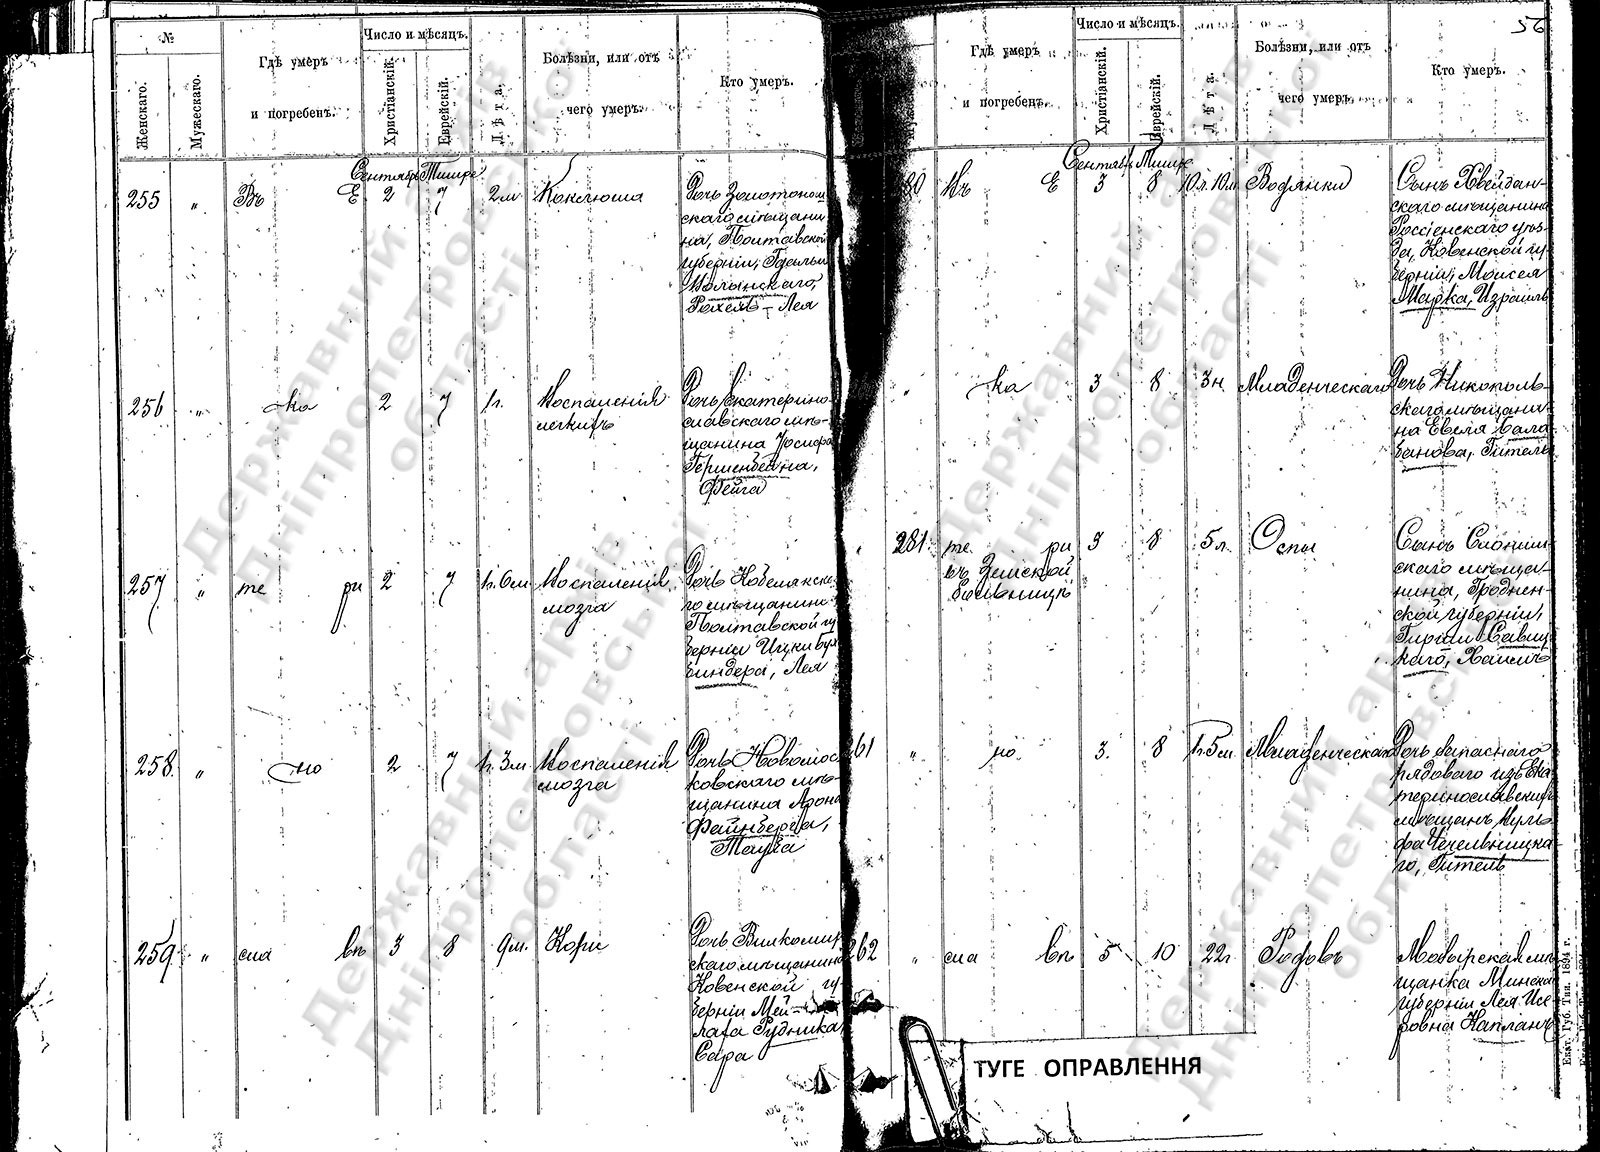 №
Женскаго.
Мужескаго.
Гдѣ умеръ
и погребенъ.
Число и мѣсяцъ.
Христіанскій.
Еврейскій.
Лѣта.
Болѣзни, или отъ
чего умеръ.
Кто умеръ.
Сентябрь Тишре
255 „ Въ Е 2 7 2м Коклюша
Дочь Золотонош
скаго мѣщани
на, Полтавской
губерніи, Гдальи
Волынскаго,
Рохель-Лея
256 „ ка 2 7 1г. Воспаленія
легкихъ
Дочь Екатерино-
славскаго мѣ-
щанина Іосифа
Гершенбейна,
Фейга
257 „ те ри 2 7 1г. 6м Воспаленія
мозга
Дочь Кобелякска
го мѣщанина
Полтавской гу
берніи Ицки Бух
биндера, Лея
258. „ но 2 7 1г. 3м Воспаленія
мозга
Дочь Новомос
ковскаго мѣ-
щанина Арона
Файнберга,
Тауба
259 „ сла въ 3 8 9м. Кори
Дочь Вилкомир
скаго мѣщанина
Ковенской гу
берніи Мей-
лаха Рудника
Сара
56
Гдѣ умеръ
и погребенъ.
Число и мѣсяцъ.
Христіанскій.
Еврейскій.
Лѣта.
Болѣзни, или отъ
чего умеръ.
Кто умеръ.
Сентябрь Тишре
280 Въ Е 3 8 10л. 10м Водянки
Сынъ Хвейдан-
скаго мѣщанина
Россіенскаго уѣз-
да, Ковенской гу
берніи, Моисея
Марка, Израиль
„ ка 3 8 3н. Младенческаго
Дочь Никополь-
скаго мѣщани-
на Евеля Бала
банова, Гитель
281. те ри 3 8 5л. Оспы
въ Земской
больницѣ
Сынъ Слоним-
скаго мѣща-
нина, Гроднен-
ской губерніи,
Гирши Савиц
каго, Хаимъ
261 „ но 3. 8 1г. 5м Младенческаго
Дочь запаснаго
рядоваго изъ Ека
теринославскихъ
мѣщанъ Вуль
фа Чечельницка-
го, Гитель
262 „ сла въ 5 10 22г Родовъ
Мозырская мѣ
щанка Минской
губерніи Лея Исе
ровна Капланъ
ТУГЕ ОПРАВЛЕННЯ
Екат. Губ. Тип. 1894 г.
Державний архів
Дніпропетровської
області